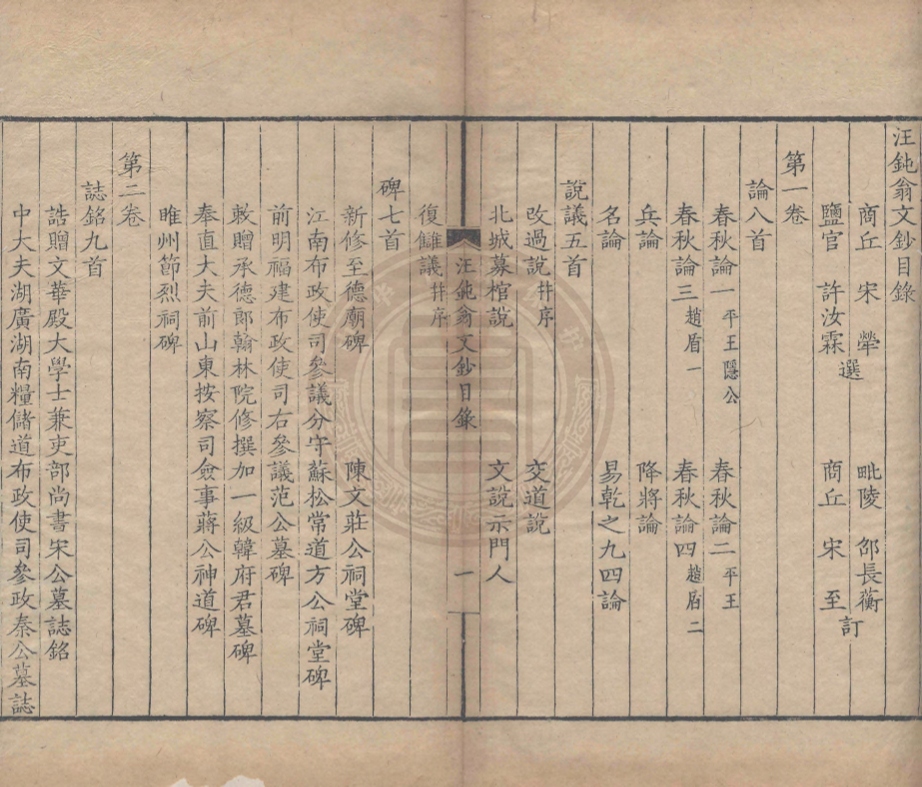 汪鈍翁文鈔目錄
商丘 宋犖 毗陵 邵長蘅
選 訂
鹽官 許汝霖 商丘 宋至
第一卷
論八首
春秋論一 平王隱公 春秋論二 平王
春秋論三 趙盾一 春秋論四 趙盾二
兵論 降將論
名論 易乾之九四論
說議五首
改過說 并序 交道說
北城募棺說 文說示門人
汪鈍翁文鈔目錄 一
復讎議 并序
碑七首
新修至德廟碑 陳文莊公祠堂碑
江南布政使司參議分守蘇松常道方公祠堂碑
前明福建布政使司右參議范公墓碑
敕贈承德郎翰林院修撰加一級韓府君墓碑
奉直大夫前山東按察司僉事蔣公神道碑
睢州節烈祠碑
第二卷
誌銘九首
誥贈文華殿大學士兼吏部尚書宋公墓誌銘
中大夫湖廣湖南糧儲道布政使司參政秦公墓誌